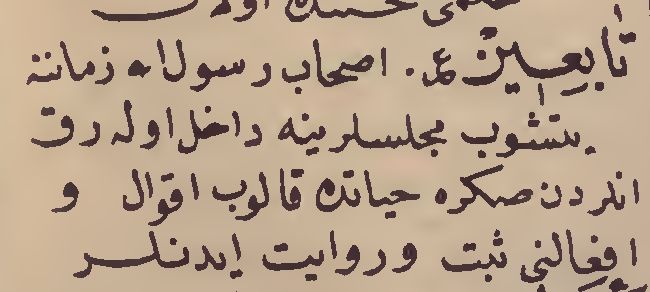 اولان
تابعین ع. اصحاب رسول الله زماننه
یتشوب مجلسلرینه داخل اوله رق
انلردن صکره حیاتده قالوب اقوال و
افعالنی ثبت و روایت ایدنلر